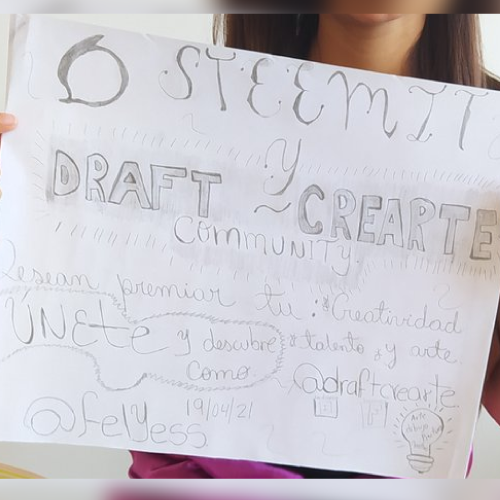 STEEMIT
y
DRAFT ~ CREARTE
COMMUNITY.
Desean premiar tu: *Creatividad
*talento *y arte.
ÚNEtE y descubre
como
@draftcrearte
@felyess
19/04/21
Arte